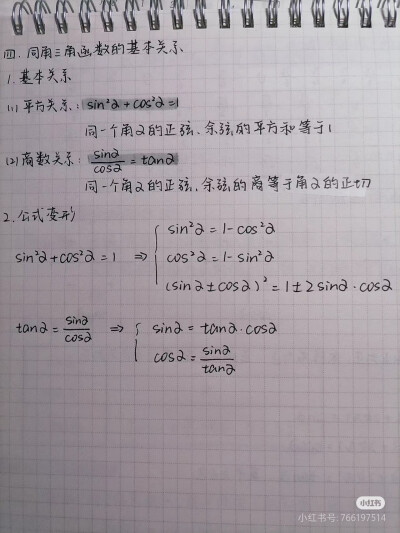 四. 同角三角函数的基本关系
1. 基本关系
(1) 平方关系: sin²α + cos²α = 1
同一个角α的正弦、余弦的平方和等于1
(2) 商数关系: sinα/cosα = tanα
同一个角α的正弦、余弦的商等于角α的正切
2. 公式变形
sin²α + cos²α = 1 ⇒ { sin²α = 1 - cos²α
cos²α = 1 - sin²α
(sinα ± cosα)² = 1 ± 2sinα·cosα
tanα = sinα/cosα ⇒ { sinα = tanα·cosα
cosα = sinα/tanα
小红书
小红书号: 766197514